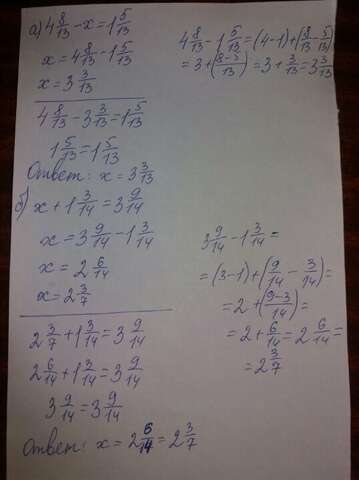 а) 4 8/13 - x = 1 5/13
x = 4 8/13 - 1 5/13
x = 3 3/13
4 8/13 - 3 3/13 = 1 5/13
1 5/13 = 1 5/13
Ответ: x = 3 3/13
4 8/13 - 1 5/13 = (4-1) + (8/13 - 5/13)
= 3 + (8-5/13) = 3 + 3/13 = 3 3/13
б) x + 1 3/14 = 3 9/14
x = 3 9/14 - 1 3/14
x = 2 6/14
x = 2 3/7
2 3/7 + 1 3/14 = 3 9/14
2 6/14 + 1 3/14 = 3 9/14
3 9/14 = 3 9/14
Ответ: x = 2 6/14 = 2 3/7
3 9/14 - 1 3/14 =
= (3-1) + (9/14 - 3/14) =
= 2 + (9-3/14) =
= 2 + 6/14 = 2 6/14 =
= 2 3/7